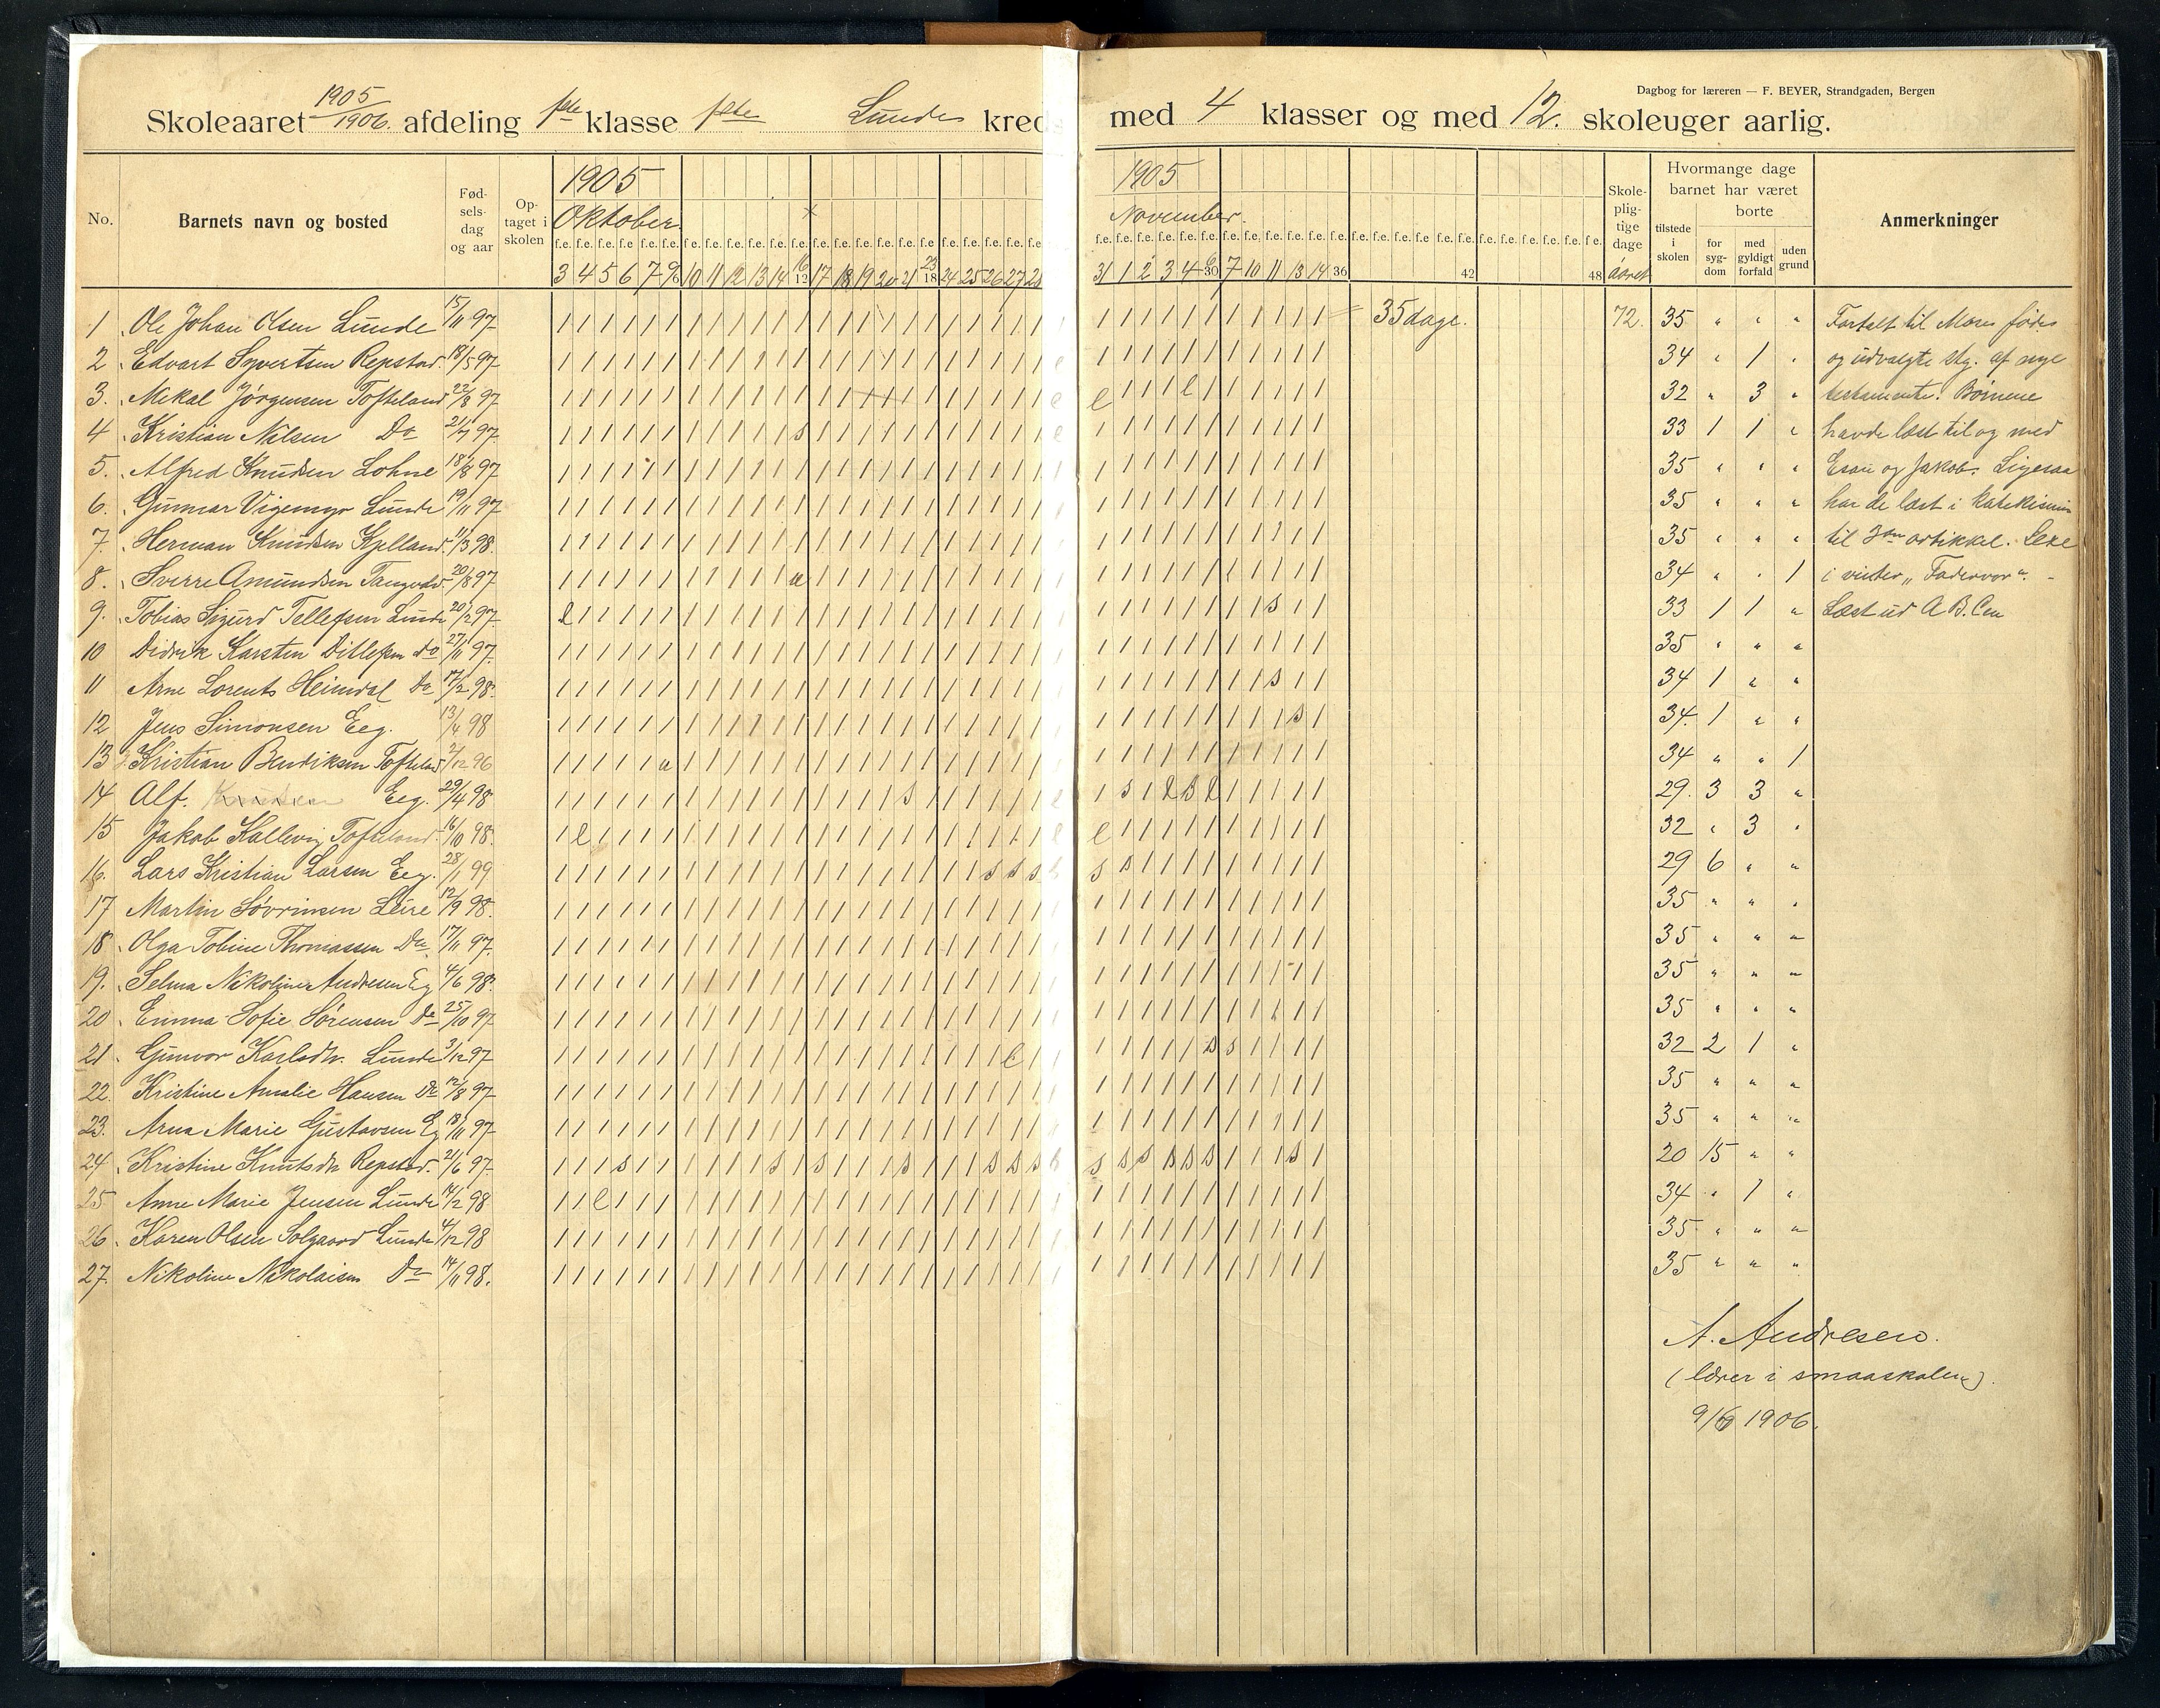 Dagbog for læreren — F. BEYER, Strandgaden, Bergen
Skoleaaret 1905/1906. afdeling 1ste klasse 1ste Lunde kred med 4 klasser og med 12. skoleuger aarlig.
No. Barnets navn og bosted Fødselsdag og aar Optaget i skolen 1905 Oktober 1905 November. Skolepligtige dage Hvormange dage barnet har været tilstede i skolen borte for sygdom med gyldigt forfald uden grund Anmerkninger
3 4 5 6 7 9 10 11 12 13 14 16 12 17 18 19 20 21 23 18 24 25 26 27 28 31 1 2 3 4 6 30 7 10 11 13 14 36 42 48 aaret
1 Ole Johan Olsen Lunde 15/11 97 35 dage. 72. 35 " " " Fortalt til Moses fødes
2 Edvart Syvertsen Repstad. 18/5 97 34 " 1 " og udvalgte stg. af nye
3. Mekal Jørgensen Tofteland 22/8 97 32 " 3 " testamente. Børnene
4 Kristian Nilsen Do 21/7 97 33 1 1 " havde læst til og med
5. Alfred Knudsen Lohne 18/8 97 35 " " " Esau og Jakob. Ligesaa
6. Gunnar Vigemyr Lunde 19/11 97 35 " " " har de læst i katekismus
7. Herman Knudsen Kjelland. 11/3 98. 35 " " " til 3die artikkel.
8. Sverre Amundsen 20/8 97 34 " " 1 i „Fadervor“. -
9. Tobias Sigurd Tellefsen Lunde 20/2 97. 33 1 1 " Læst ud A B. Cen
10 Didrik Karsten Ditlefsen do 27/11 97. 35 " " "
11 Arne Lorents Heimdal Do 17/2 98. 34 1 " "
12 Jens Simonsen Eeg. 13/4 98 34. 1 " "
13 Kristian Bendiksen Tofteland 2/12 96 34 " " 1
14 Alf. Knudsen Eeg. 29/4 98 29. 3 3 "
15 Jakob Kallevig Tofteland. 16/10 98. 32 " 3 "
16. Lars Kristian Larsen Eeg. 28/1 99 29 6 " "
17 Martin Sövrinsen Leire 12/9 98. 35 " " "
18. Olga Tobine Thomassen Do. 17/11 97. 35 " " "
19. Selma Nikoline Andresen Eg 4/6 98. 35 " " "
20 Emma Sofie Sörensen Do 25/10 97 35 " " "
21 Gunvor Karlsdtr. Lunde 3/12 97 32 2 1 "
22. Kristine Amalie Hansen Do 12/8 97 35 " " "
23. Anna Marie Gustavsen Eg 18/11 97 35 " " "
24 Kristine Knutsdtr Repstad. 21/6 97 20 15 " "
25 Anne Marie Jensen Lunde 14/2 98 34 " 1 "
26 Karen Olsen Solgaard Lunde 4/12 98 35 " " "
27. Nikoline Nikolaisen Do 14/11 98. 35 " " "
A. Andresen.
(lærer i smaaskolen).
1906.